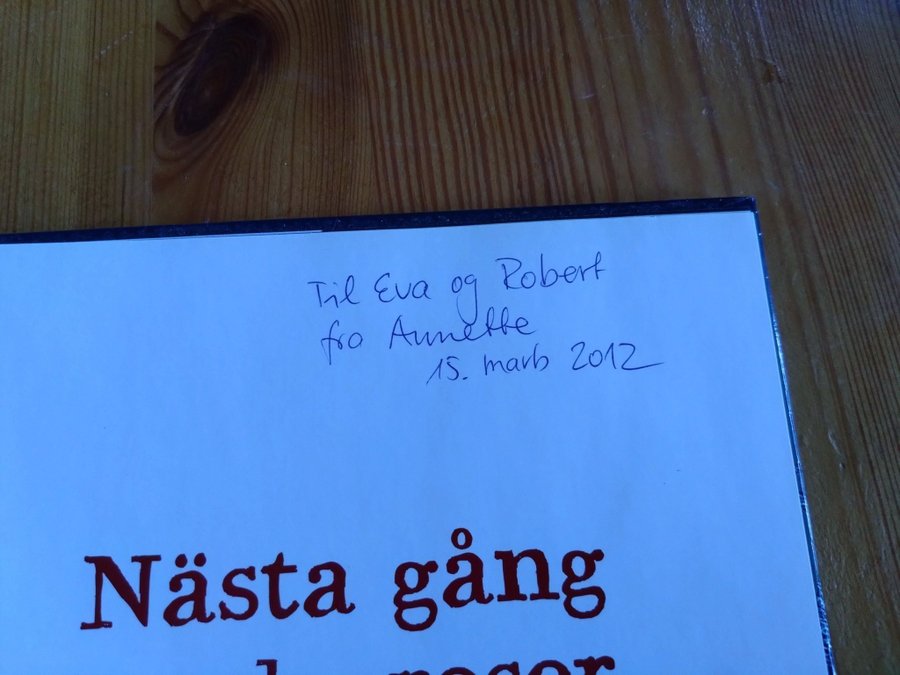 Til Eva og Robert
fra Annette
15. marts 2012
Nästa gång